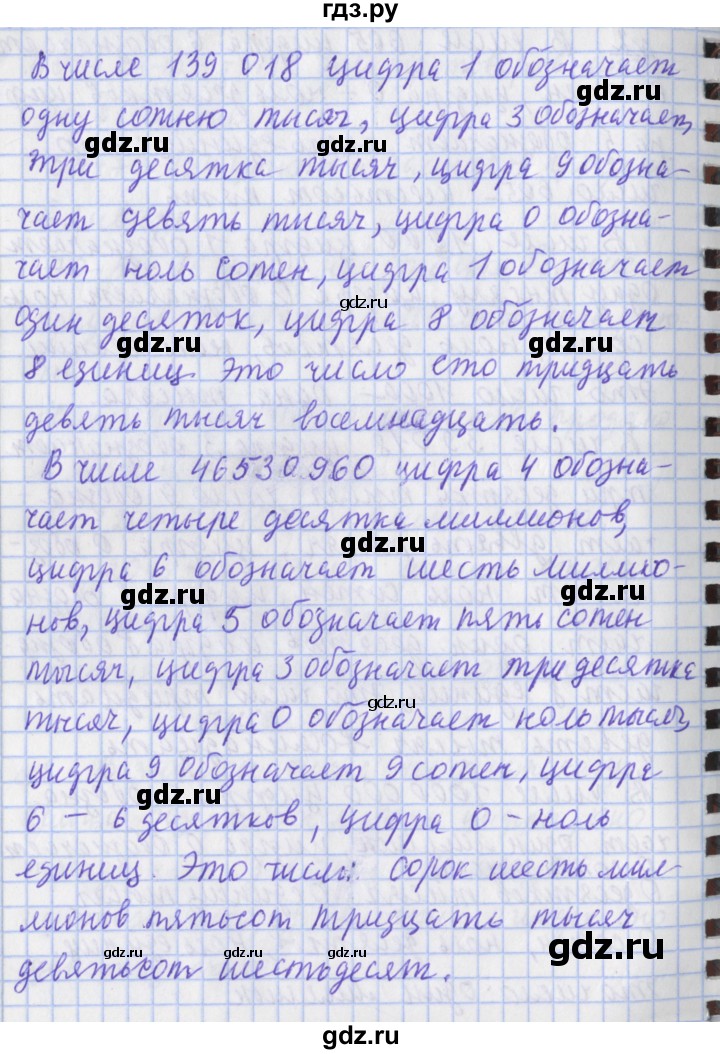 гдз.ру
В числе 139 018 цифра 1 обозначает
одну сотню тысяч, цифра 3 обозначает
три десятка тысяч, цифра 9 обозна-
чает девять тысяч, цифра 0 обозна-
чает ноль сотен, цифра 1 обозначает
один десяток, цифра 8 обозначает
8 единиц. Это число сто тридцать
девять тысяч восемнадцать.
В числе 46530960 цифра 4 обозна-
чает четыре десятка миллионов,
цифра 6 обозначает шесть миллио-
нов, цифра 5 обозначает пять сотен
тысяч, цифра 3 обозначает три десятка
тысяч, цифра 0 обозначает ноль тысяч,
цифра 9 обозначает 9 сотен, цифра
6 – 6 десятков, цифра 0 – ноль
единиц. Это число: сорок шесть мил-
лионов пятьсот тридцать тысяч
девятьсот шестьдесят.
gdz.ru